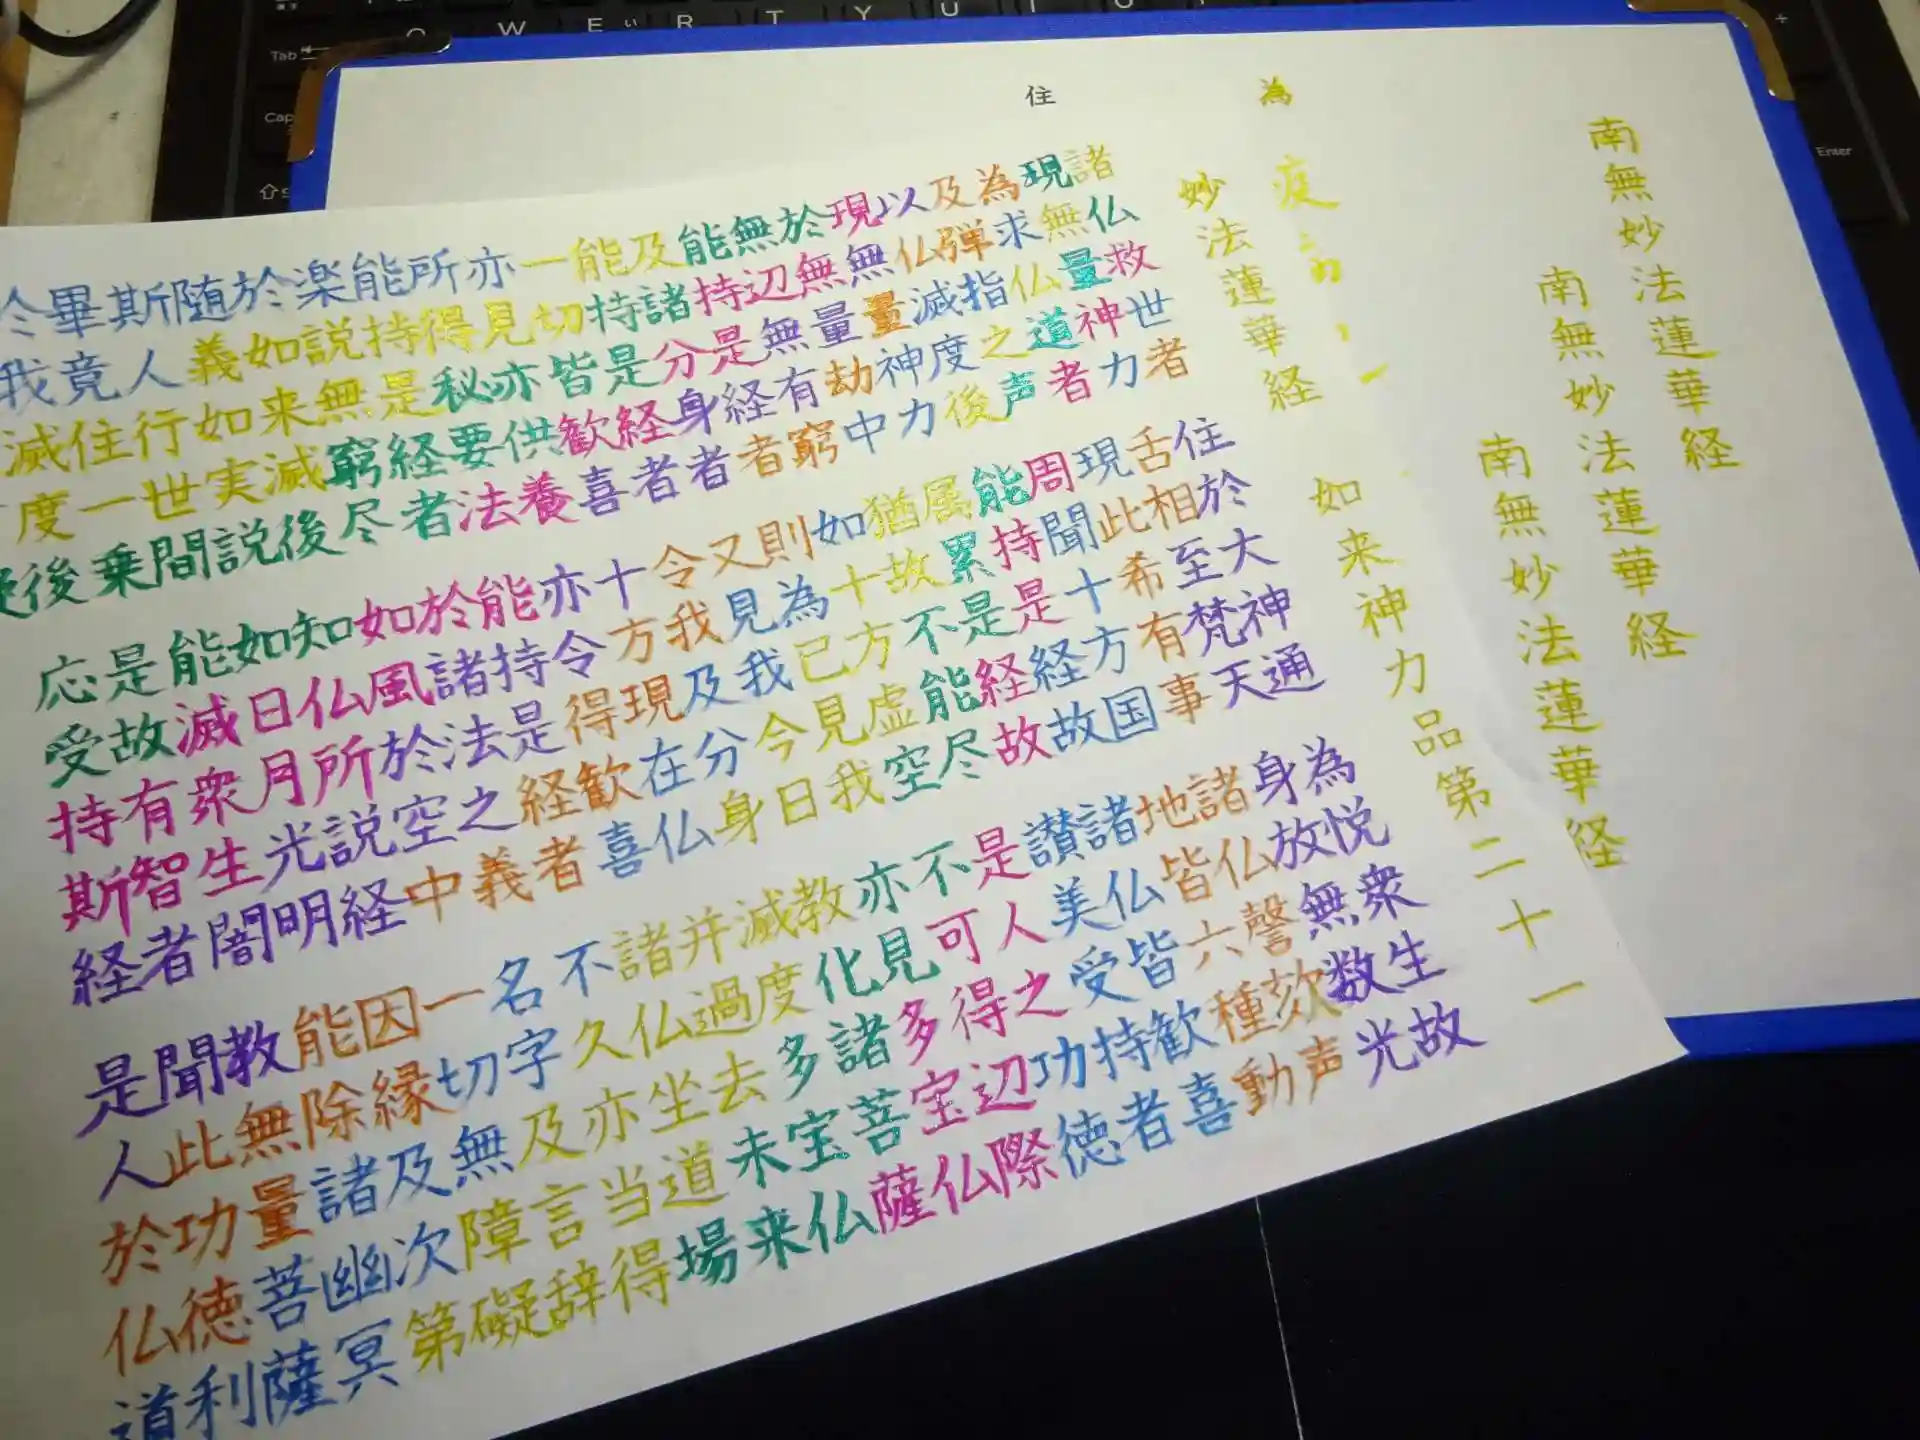 南無妙法蓮華経
南無妙法蓮華経
南無妙法蓮華経
為 疫
住
妙法蓮華経 如来神力品第二十一
諸仏救世者 住於大神通 為悦衆生故
現無量神力 舌相至梵天 身放無数光
為求仏道者 現此希有事 諸仏謦欬声
及弾指之声 周聞十方国 地皆六種動
以仏滅度後 能持是経故 諸仏皆歓喜
現無量神力 属累是経故 讃美受持者
於無量劫中 猶故不能尽 是人之功徳
無辺無有窮 如十方虚空 不可得辺際
能持是経者 則為已見我 亦見多宝仏
及諸分身者 又見我今日 教化諸菩薩
能持是経者 令我及分身 滅度多宝仏
一切皆歓喜 十方現在仏 并過去未来
亦見亦供養 亦令得歓喜 諸仏坐道場
所得秘要法 能持是経者 不久亦当得
能持是経者 於諸法之義 名字及言辞
楽説無窮尽 如風於空中 一切無障礙
於如来滅後 知仏所説経 因縁及次第
随義如実説 如日月光明 能除諸幽冥
斯人行世間 能滅衆生闇 教無量菩薩
畢竟住一乗 是故有智者 聞此功徳利
於我滅度後 応受持斯経 是人於仏道